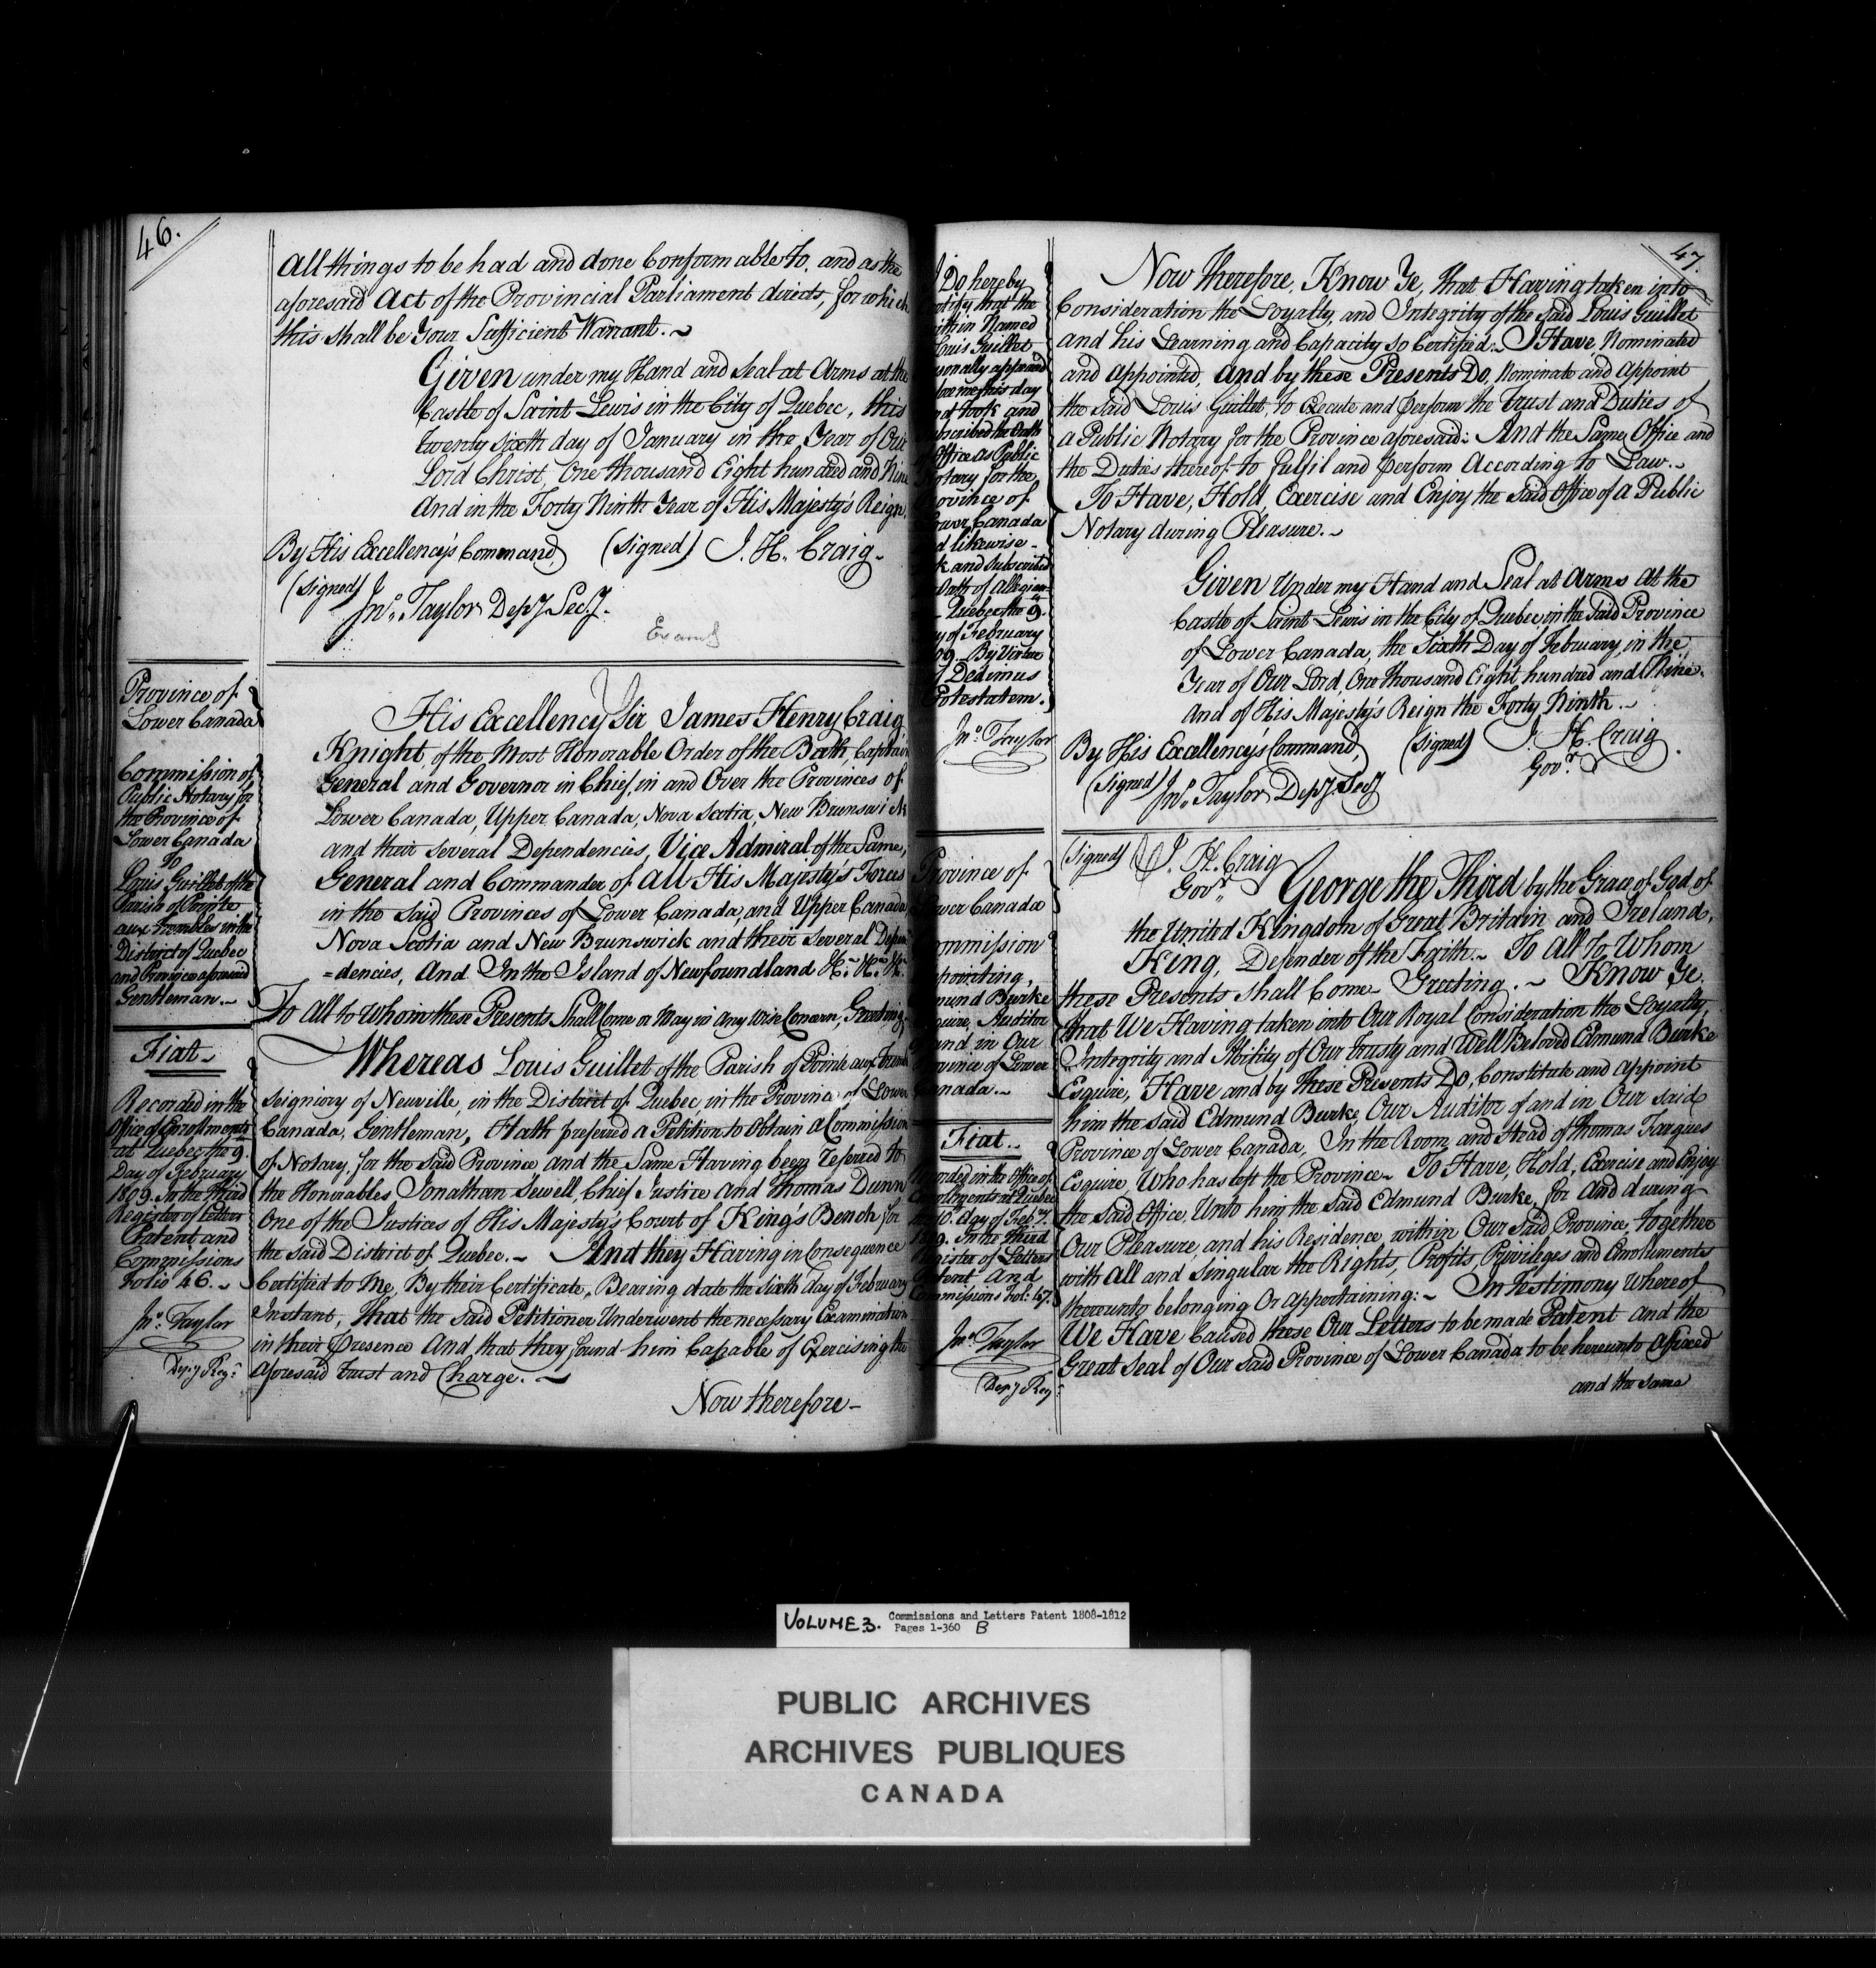 46.
All things to be had and done Conformable to, and as the
aforesaid Act of the Provincial Parliament directs, for which
this shall be Your Sufficient Warrant.~
Given under my Hand and Seal at Arms at the
Castle of Saint Lewis in the City of Quebec, this
twenty sixth day of January in the Year of Our
Lord Christ, One thousand Eight hundred and Nine
And in the Forty Ninth Year of His Majesty's Reign.
By His Excellency's Command, (Signed) J. H. Craig~
(Signed) Jnº. Taylor Depy. Secy.
Examd
Province of
Lower Canada
Commission of
Public Notary for
the Province of
Lower Canada
To
Louis Guillet of the
Parish of Pointe
aux Trembles in the
District of Quebec
and Province aforesaid
Gentleman.~
Fiat~
Recorded in the
Office of Enrollments
at Quebec the 9.
Day of February
1809. In the Third
Register of Letters
Patent and
Commissions
Folio 46.~
Jnº. Taylor
Depy Regr.
His Excellency Sir James Henry Craig,
Knight, of the Most Honorable Order of the Bath, Captain
General and Governor in Chief, in and Over the Provinces of
Lower Canada, Upper Canada, Nova Scotia, New Brunswick
and their Several Dependencies, Vice Admiral of the Same,
General and Commander of All His Majesty's Forces
in the said Provinces of Lower Canada, and Upper Canada
Nova Scotia and New Brunswick and their Several Depen
=dencies, And In the Island of Newfoundland &c. &c. &c.
To All to Whom these Presents Shall Come or May in Any Wise Concern, Greeting.
Whereas Louis Guillet of the Parish of Pointe aux Trembles
Seigniory of Neuville, in the District of Quebec, in the Province of Lower
Canada, Gentleman, Hath preferred a Petition to Obtain a Commission
of Notary, for the said Province and the Same Having been Referred to
the Honorables Jonathan Sewell, Chief Justice and Thomas Dunn
One of the Justices of His Majesty's Court of King's Bench for
the said District of Quebec.~ And they Having in Consequence
Certified to Me, By their Certificate, Bearing date the Sixth day of February
Instant, That the said Petitioner Underwent the necessary Examination
in their Presence And that they found him Capable of Exercising the
Aforesaid Trust and Charge.~
Now therefore~
47.
I Do hereby
ertify that the
ithin Named
Louis Guillet
rsonally appeared
fore me this day
nd took and
ubscribed the Oath
Office as Public
Notary for the
Province of
Lower Canada
d likewise~
k and Subscribed
Oath of Allegian
Quebec the 9.
y of February
09. By Virtue
f Dedimus
Potestatem.
Jnº. Taylor
Now therefore, Know Ye, that Having taken into
Consideration the Loyalty, and Integrity of the said Louis Guillet
and his Learning and Capacity so Certified~ I Have, Nominated
and appointed, And by these Presents Do, Nominate and Appoint
the said Louis Guillet, to Execute and perform the Trust and Duties of
a Public Notary for the Province aforesaid: And the Same Office and
the Duties thereof to fulfil and perform According to Law.~
To Have, Hold, Exercise and Enjoy the said Office of a Public
Notary during Pleasure.~
Given Under my Hand and Seal at Arms At the
Castle of Saint Lewis in the City of Quebec, in the said Province
of Lower Canada, the Sixth Day of February, in the
Year of Our Lord, One thousand Eight hundred and Nine.
And of His Majesty's Reign the Forty Ninth.~
By His Excellency's Command, (Signed) J. H. Craig
Govr.
(Signed) Jnº. Taylor Depy. Secy
Province of
Lower Canada
ommission
ppointing,
mund Burke
quire, Auditor
and in Our
rovince of Lower
Canada.~
Fiat.~
ecorded in the Office of
Enrollments at Quebec
10th. day of Feby.
1809. In the Third
Register of Letters
Patent And
Commissions Fol: 47.
Jnº. Taylor
Depy Regr.
(Signed) J. H. Craig
Govr.
George the Third by the Grace of God of
the United Kingdom of Great Britain and Ireland,
King, Defender of the Faith.~ To All To Whom
these Presents shall Come~ Greeting.~ Know Ye,
that We Having taken into Our Royal Consideration the Loyalty,
Integrity and Ability of Our Trusty and Well Beloved Edmund Burke
Esquire, Have and by these Presents Do, Constitute and appoint
him the said Edmund Burke Our Auditor of and in Our said
Province of Lower Canada, In the Room and Stead of Thomas Fargues
Esquire, Who has left the Province~ To Have, Hold, Exercise and Enjoy
the said Office, Unto him the said Edmund Burke, for And during
Our Pleasure, and his Residence within Our said Province, Together
with All and Singular the Rights, Profits, Privileges and Emoluments
thereunto belonging Or appertaining:~ In Testimony Whereof
We Have Caused these Our Letters to be made Patent and the
Great Seal of Our said Province of Lower Canada to be hereunto Affixed
and the same
VOLUME 3. Commissions and Letters Patent 1808-1812
Pages 1-360 B
PUBLIC ARCHIVES
ARCHIVES PUBLIQUES
CANADA